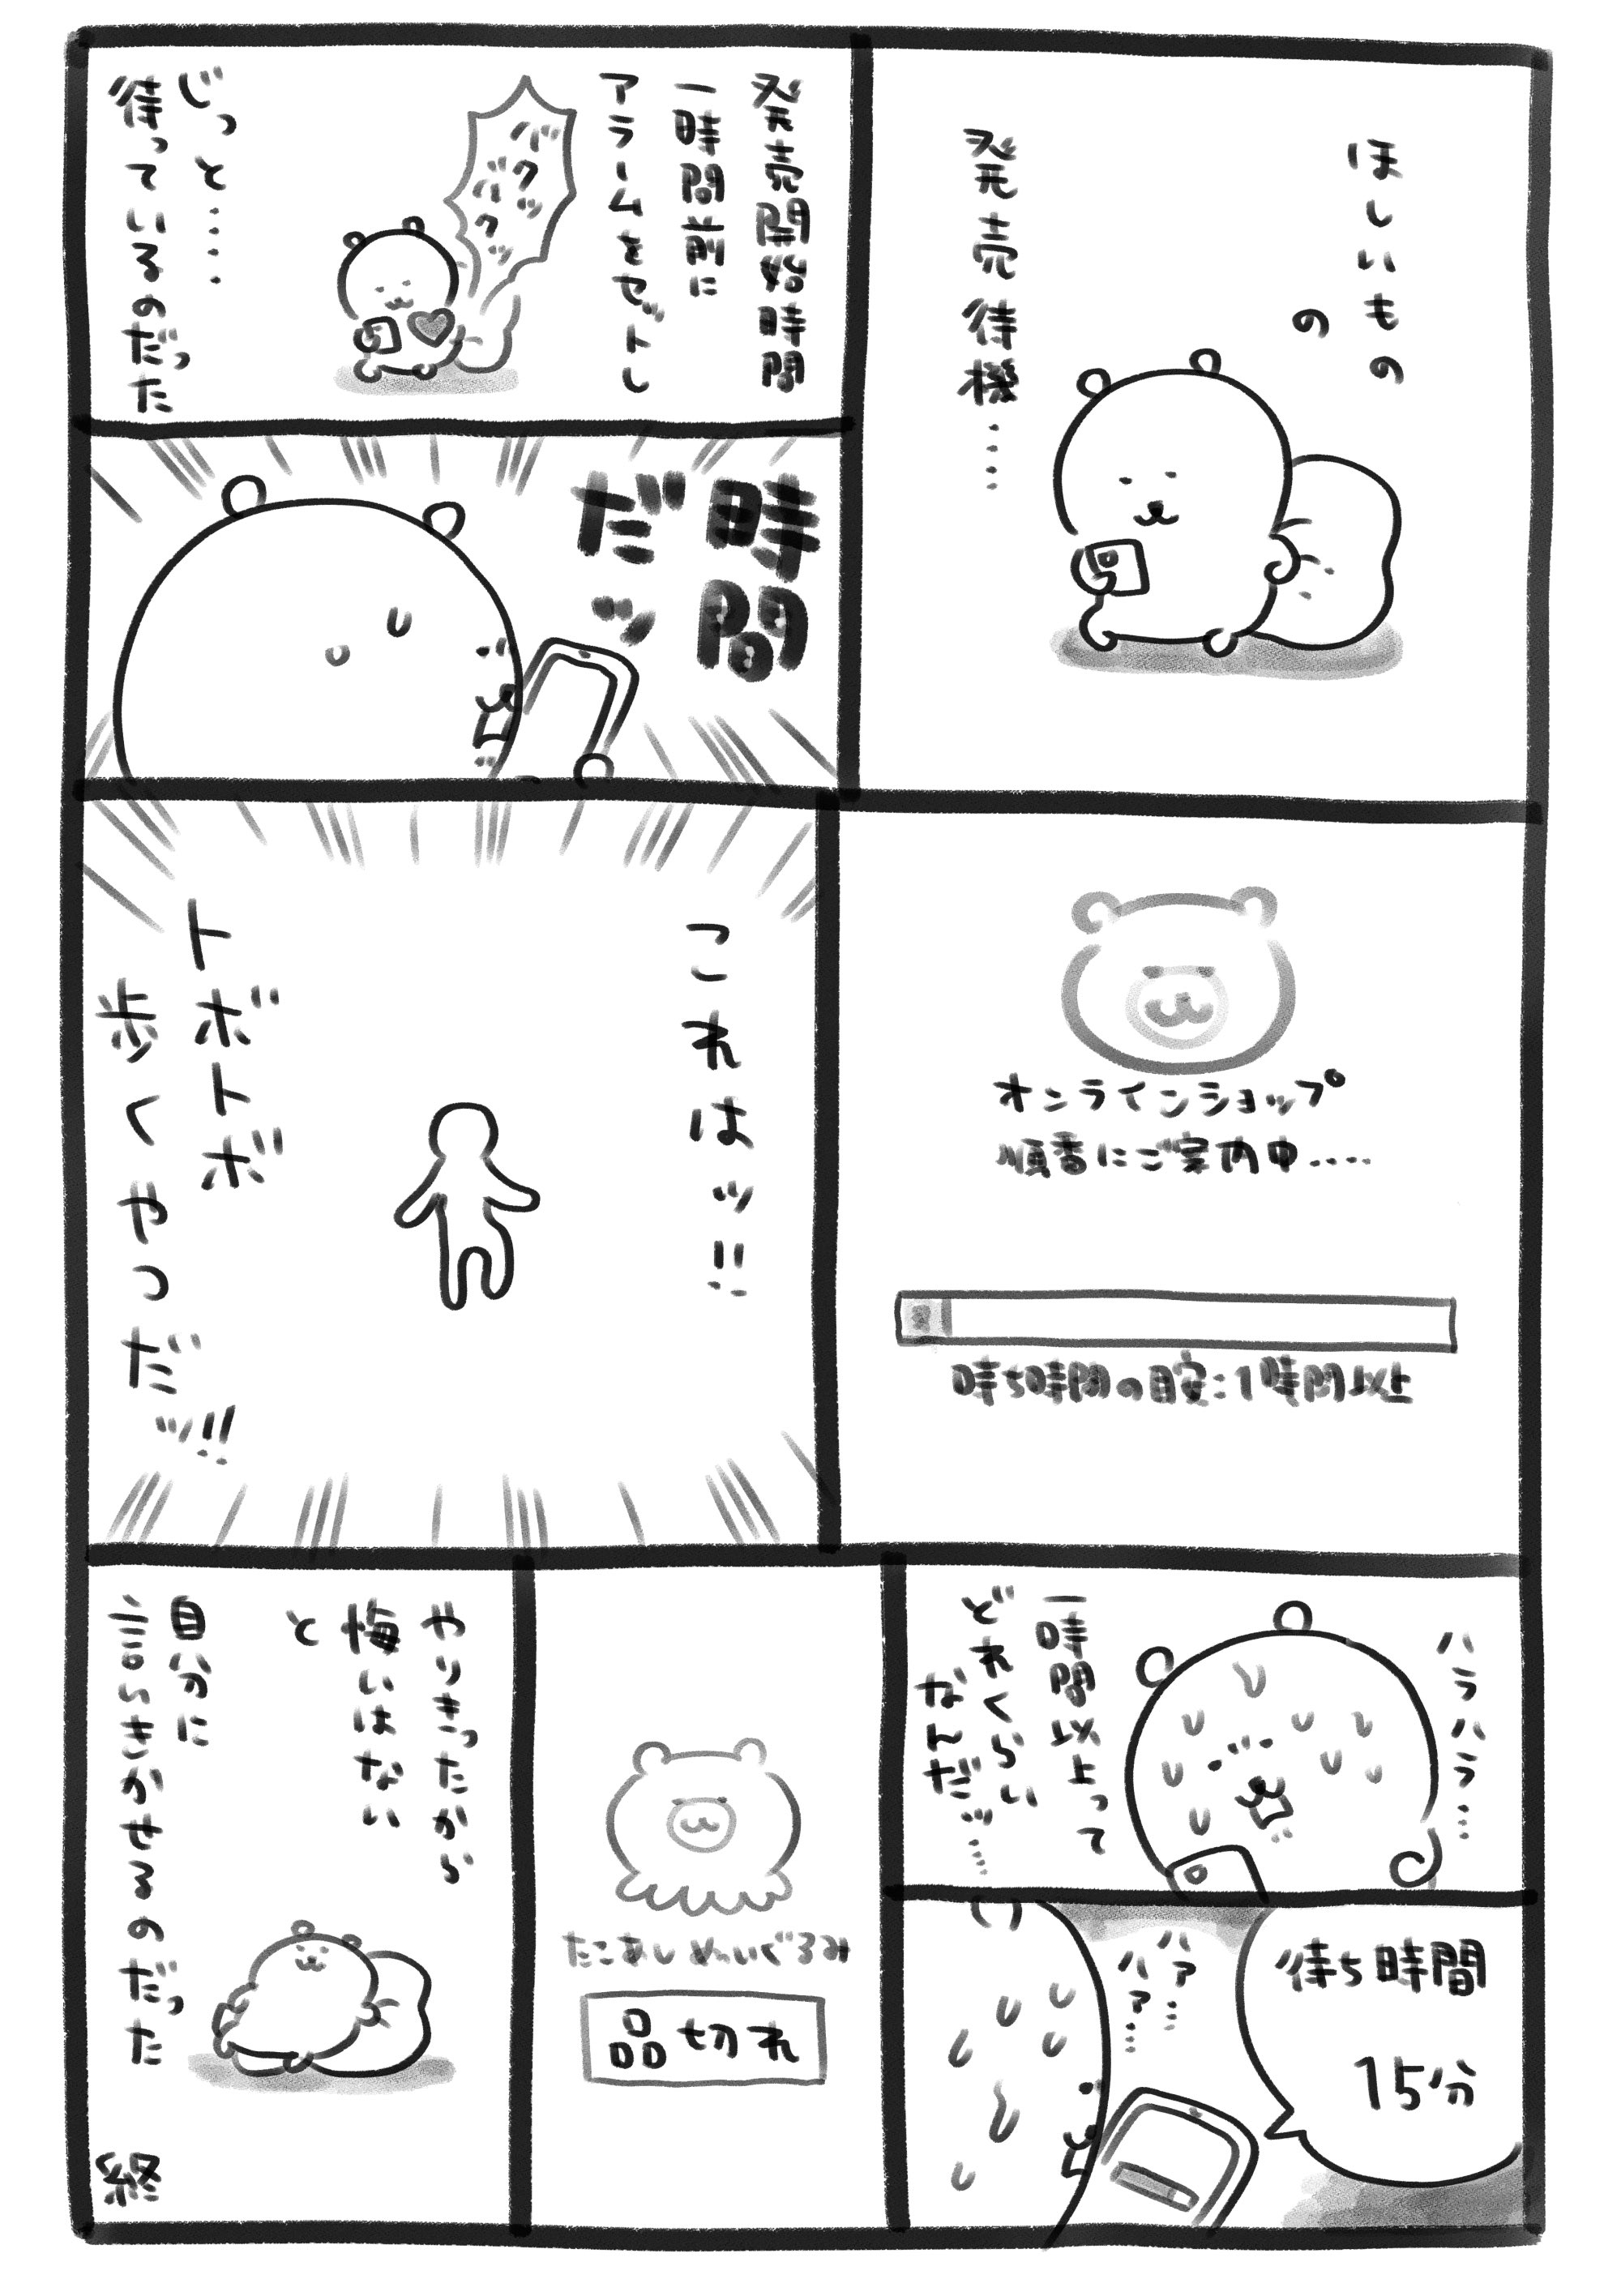 ほしいもの
の
発売待機……
発売開始時間
一時間前に
アラームをセットし
バクッ
バクッ
じっと……
待っているのだった
時間
だッ
オンラインショップ
順番にご案内中……
待ち時間の目安：1時間以上
これはッ!!
トボトボ
歩くやつだッ!!
ハラハラ…
一時間以上って
どれくらい
なんだッ……
待ち時間
15分
ハァ…
ハァ…
たこあしぬいぐるみ
品切れ
やりきったから
悔いはない
と
自分に
言いきかせるのだった
終